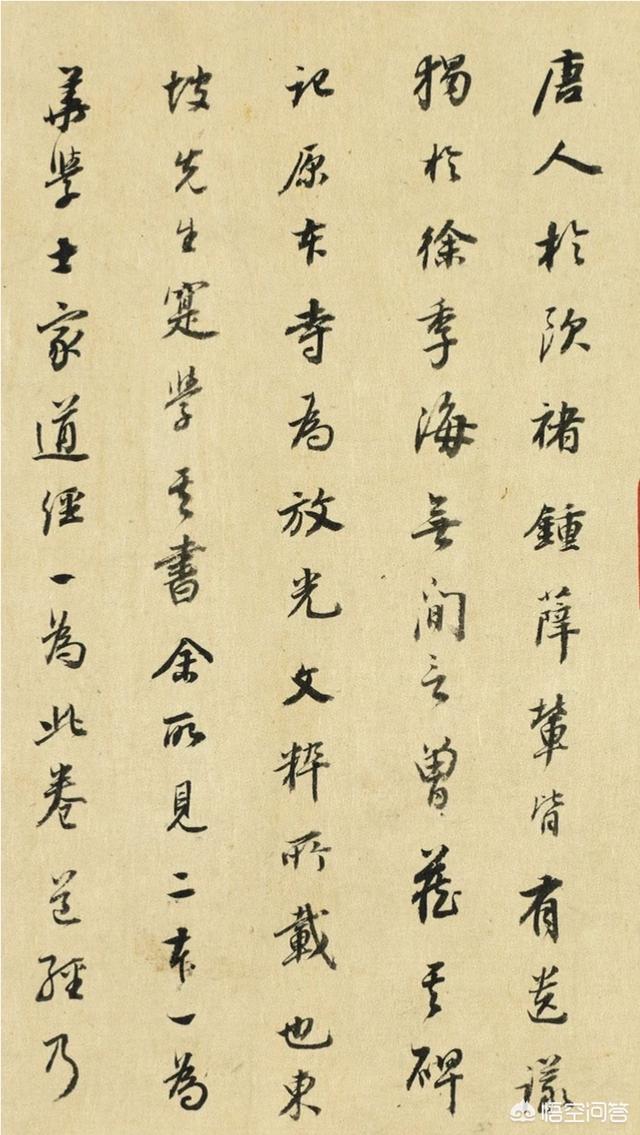 唐人於歐褚鍾薛輩皆有遺議
獨於徐季海無間言曾藏其碑
記原本寺為放光文粹所載也東
坡先生寔學其書余所見二本一為
華學士家道經一為此卷道經乃
悟空问答